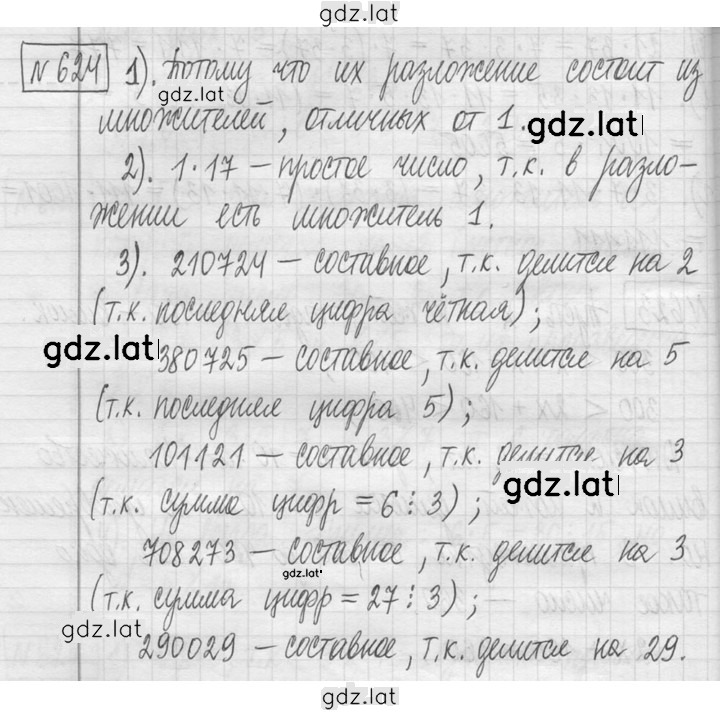 gdz.lat
№ 624 1). Потому что их разложение состоит из
gdz.lat
множителей, отличных от 1.
gdz.lat
2). 1·17 – простое число, т.к. в разло-
жении есть множитель 1.
3). 210724 – составное, т.к. делится на 2
(т.к. последняя цифра чётная);
gdz.lat
380725 – составное, т.к. делится на 5
(т.к. последняя цифра 5);
101121 – составное, т.к. делится на 3
gdz.lat
(т.к. сумма цифр = 6 ⋮ 3);
708273 – составное, т.к. делится на 3
gdz.lat
(т.к. сумма цифр = 27 ⋮ 3);
gdz.lat
290029 – составное, т.к. делится на 29.
gdz.lat